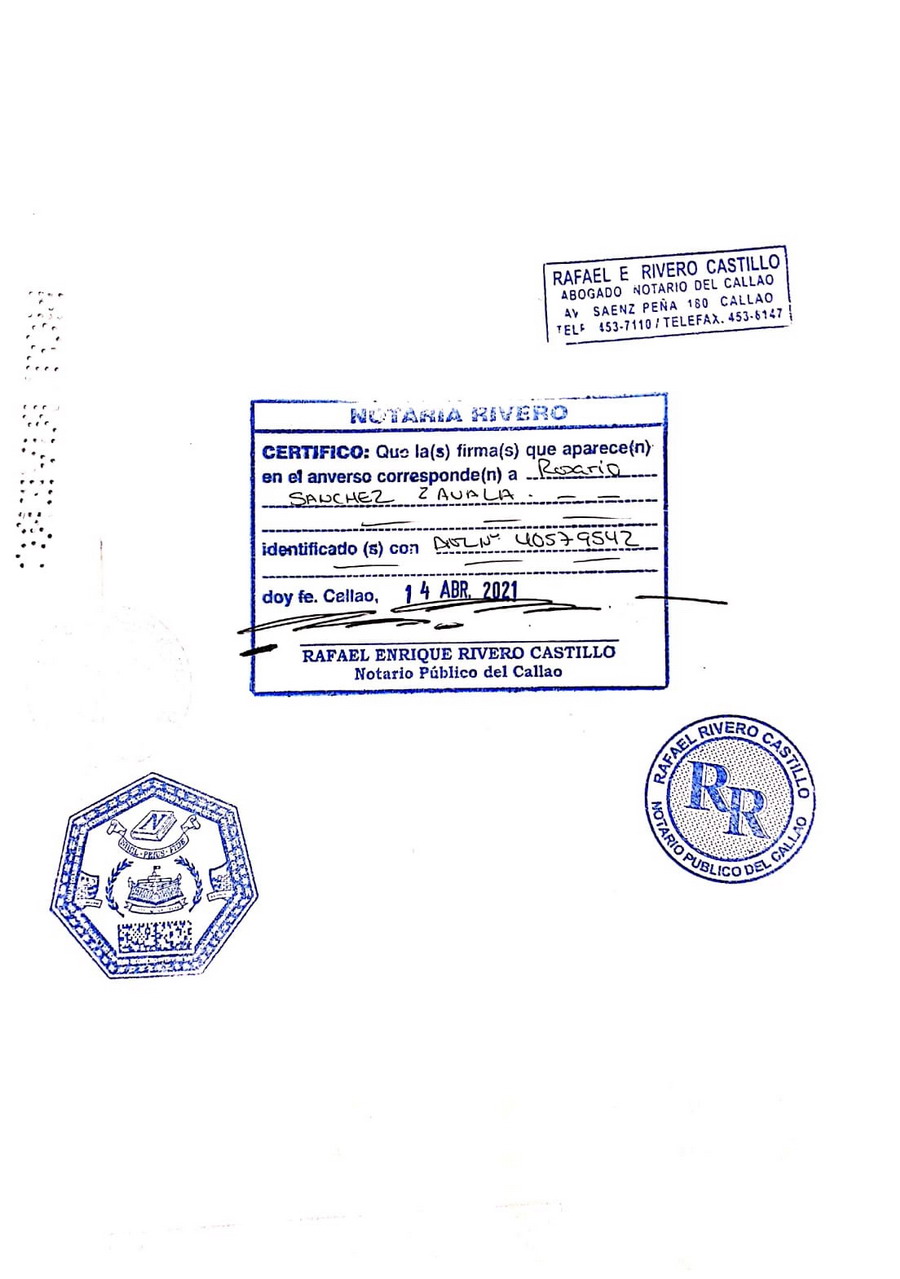 RAFAEL E RIVERO CASTILLO
ABOGADO NOTARIO DEL CALLAO
AV SAENZ PEÑA 180 CALLAO
TELF 453-7110 / TELEFAX. 453-6147
NOTARIA RIVERO
CERTIFICO: Que la(s) firma(s) que aparece(n)
en el anverso corresponde(n) a Rosario
SANCHEZ ZAVALA.
identificado (s) con DNI N° 40579542
doy fe. Callao, 14 ABR. 2021
RAFAEL ENRIQUE RIVERO CASTILLO
Notario Público del Callao
RAFAEL RIVERO CASTILLO
RR
NOTARIO PUBLICO DEL CALLAO
N